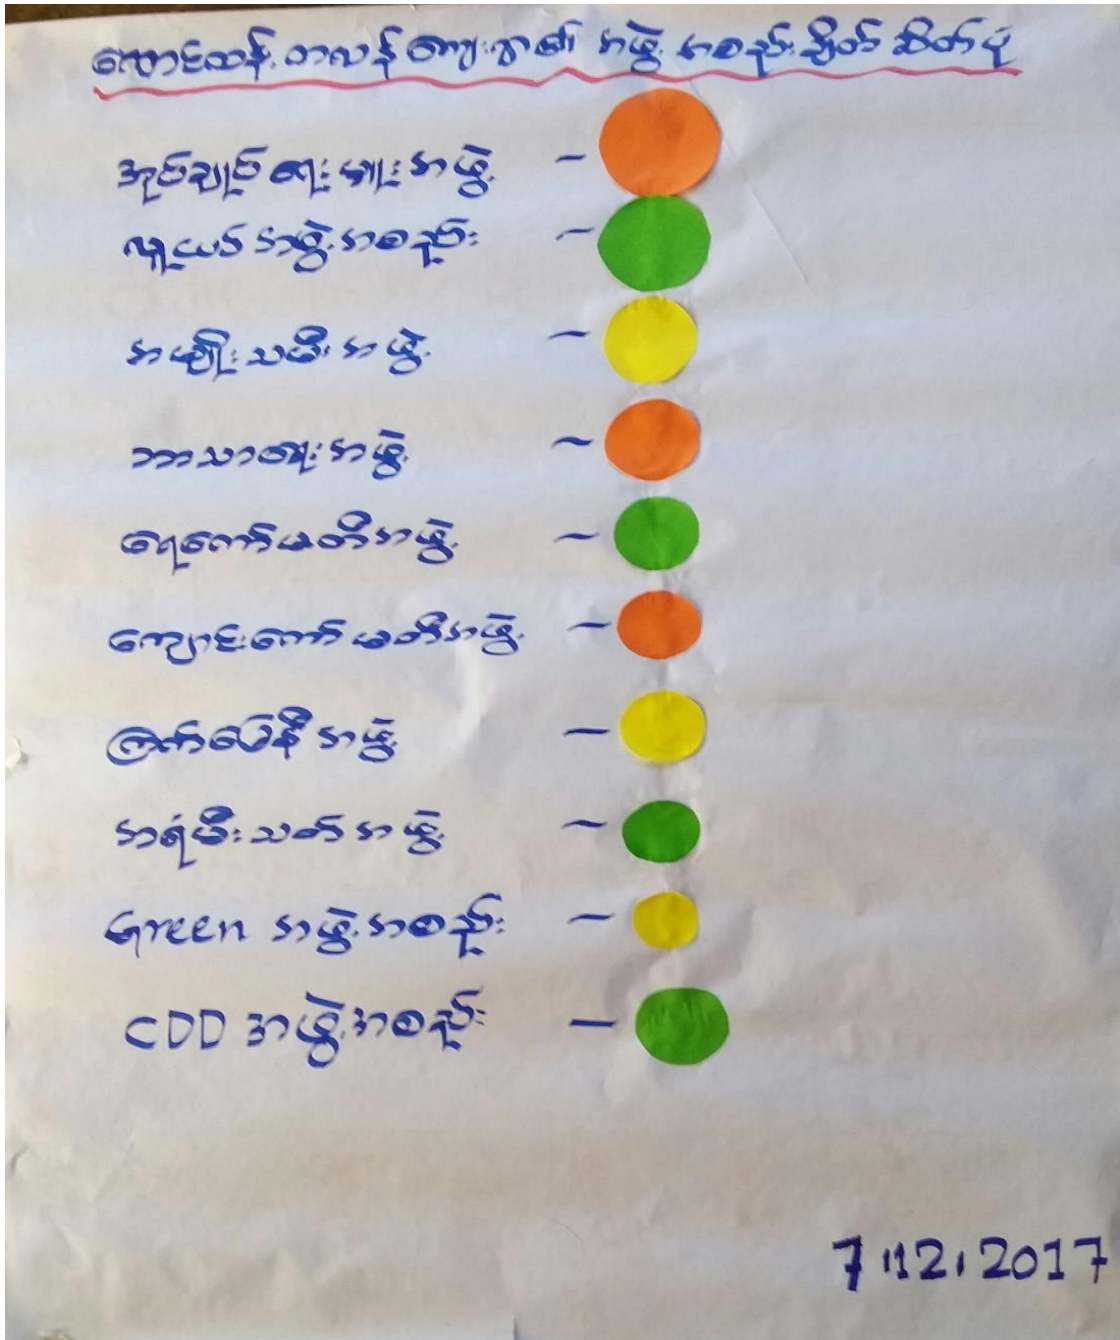 တလန် ကျေးရွာ၏ အဖွဲ့ အစည်းချိတ်ဆိတ်ပုံ
အုပ်ချုပ်ရေးမှူးအဖွဲ့ -
လူငယ် အဖွဲ့အစည်း -
အမျိုးသမီးအဖွဲ့ -
ဘာသာရေးအဖွဲ့ -
ရေကော်မတီအဖွဲ့ -
ကျောင်းကော်မတီအဖွဲ့ -
ကြက်ခြေနီအဖွဲ့ -
အရံမီးသတ်အဖွဲ့ -
Green အဖွဲ့အစည်း -
CDD အဖွဲ့အစည်း -
7.12.2017